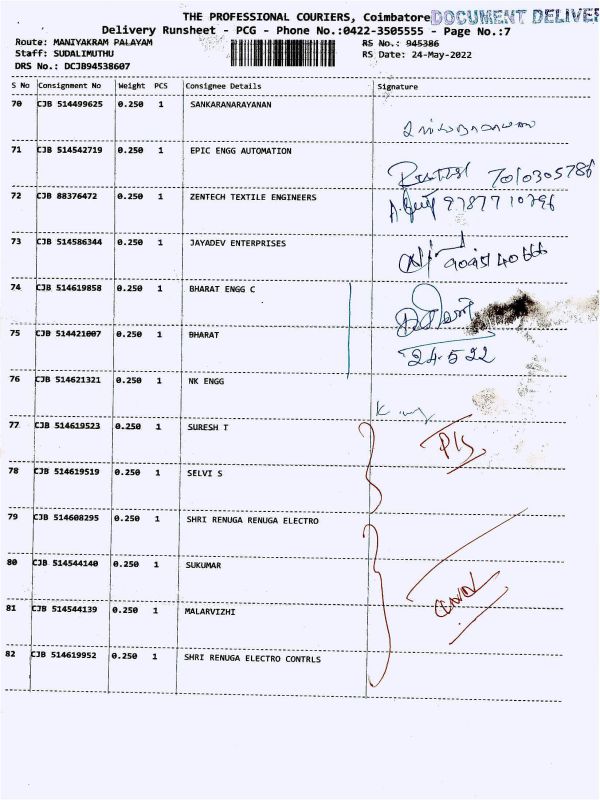 THE PROFESSIONAL COURIERS, Coimbatore DOCUMENT DELIVER
Delivery Runsheet - PCG - Phone No.:0422-3505555 - Page No.:7
Route: MANIYAKRAM PALAYAM RS No.: 945386
Staff: SUDALIMUTHU RS Date: 24-May-2022
DRS No.: DCJB94538607
S No Consignment No Weight PCS Consignee Details Signature
70 CJB 514499625 0.250 1 SANKARANARAYANAN
71 CJB 514542719 0.250 1 EPIC ENGG AUTOMATION
7010305786
72 CJB 88376472 0.250 1 ZENTECH TEXTILE ENGINEERS
9787710796
73 CJB 514586344 0.250 1 JAYADEV ENTERPRISES
74 CJB 514619858 0.250 1 BHARAT ENGG C
75 CJB 514421007 0.250 1 BHARAT
24.5.22
76 CJB 514621321 0.250 1 NK ENGG
77 CJB 514619523 0.250 1 SURESH T
78 CJB 514619519 0.250 1 SELVI S
79 CJB 514608295 0.250 1 SHRI RENUGA RENUGA ELECTRO
80 CJB 514544140 0.250 1 SUKUMAR
81 CJB 514544139 0.250 1 MALARVIZHI
82 CJB 514619952 0.250 1 SHRI RENUGA ELECTRO CONTRLS